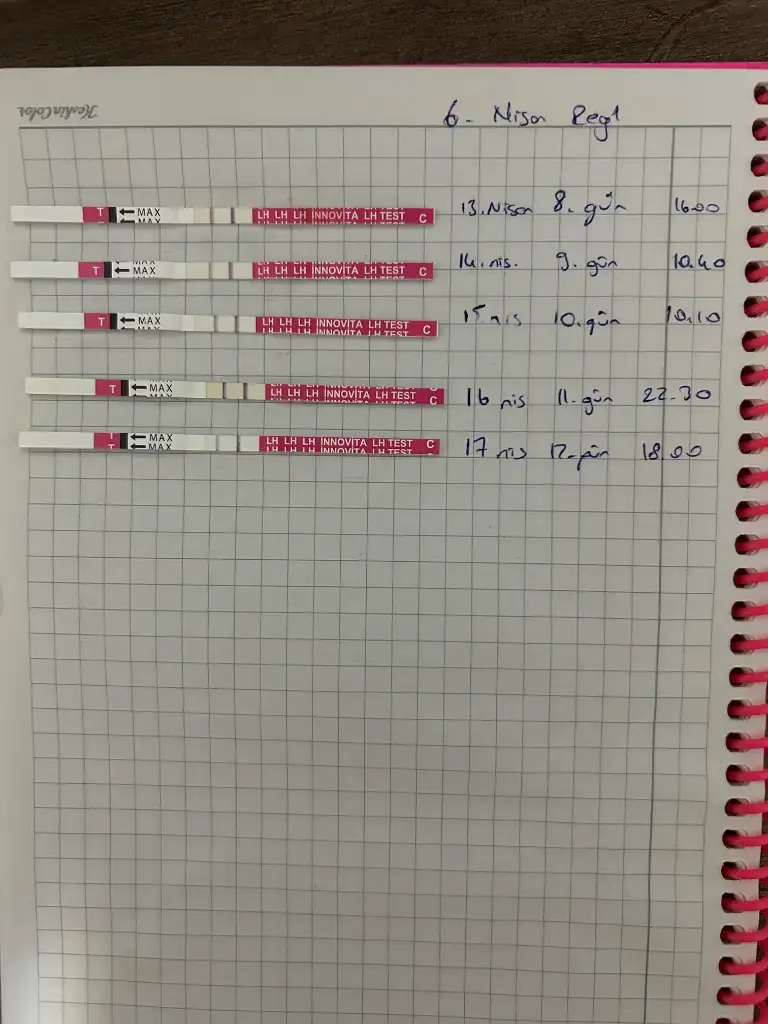 KeskinColor
6- Nisan Regl
T MAX MAX LH LH LH INNOVITA LH TEST C 13. Nisan 8. gün 16.00
T MAX MAX LH LH LH INNOVITA LH TEST C 14. nis. 9. gün 10.40
T MAX MAX LH LH LH INNOVITA LH TEST C 15 nis 10. gün 10.10
T MAX MAX LH LH LH INNOVITA LH TEST C 16 nis 11. gün 22.30
T MAX MAX LH LH LH INNOVITA LH TEST C 17 nis 12. gün 18.00